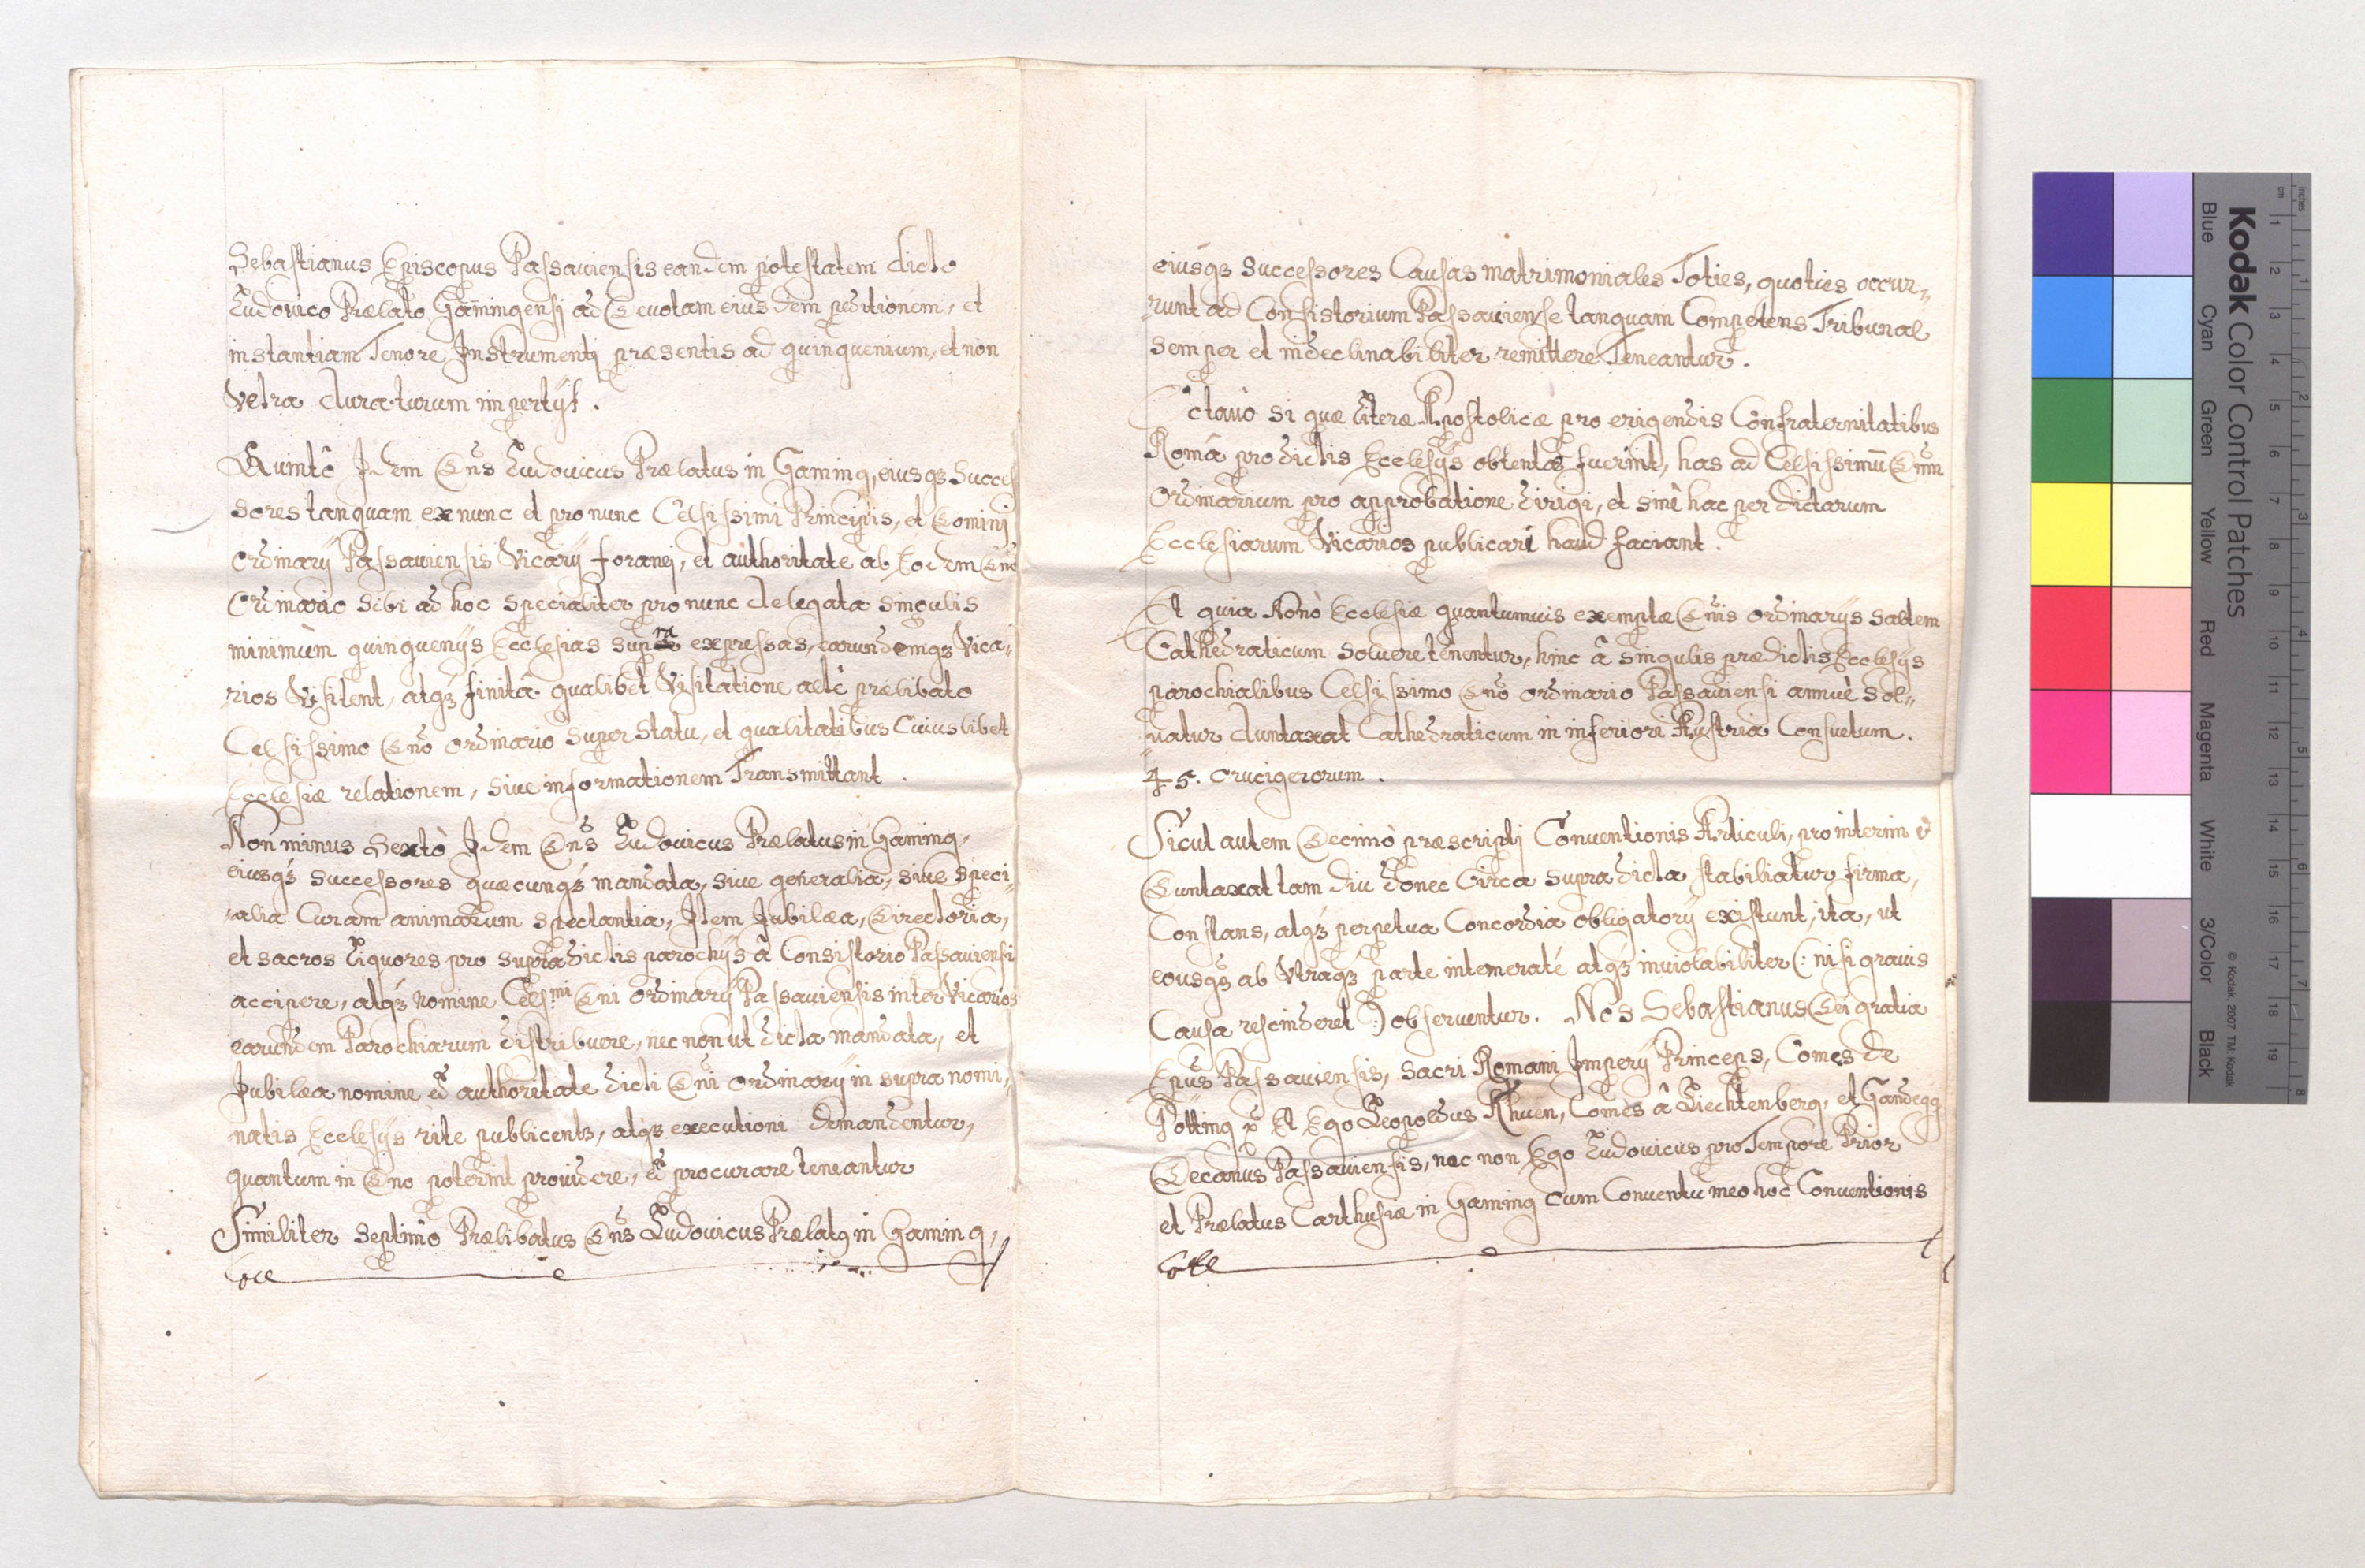 Sebastianus Episcopus Passauiensis eandem potestatem dicto
Ludouico Prælato Gamingensj ad Deuotam eiusdem petitionem, et
instantiam Tenore Instrumentj præsentis ad quinquenium, et non
Vltra duraturum impertijt.
Quintô Idem Dn̄s Ludouicus Prælatus in Gaming, eiusqȝ Succes
sores tanquam ex nunc et pro nunc Celsissimi Principis, et Dominj
Ordinarij Passauiensis Vicarij foranej, et authoritate ab Eodem Dn̄o
Ordinario sibi ad hoc specialiter pro nunc delegata singulis
minimùm quinquenijs Ecclesias supra expressas, earundemqȝ Vica„
rios Visitent, atqȝ finitâ qualibet Visitatione altè prælibato
Celsissimo Dn̄o Ordinario super statu, et qualitatibus Cuiuslibet
Ecclesiæ relationem, siue informationem Transmittant.
Non minus Sextò Idem Dn̄s Ludouicus Prælatus in Gaming,
eiusqȝ successores quæcunqȝ mandata, siue generalia, siue speci„
„alia Curam animarum spectantia, Item Jubilæa, Directoria,
et sacros Liquores pro supradictis parochijs â Consistorio Passauiensi
accipere, atqȝ nomine Cels:mi Dn̄i Ordinarij Passauiensis inter Vicarios
earundem Parochiarum distribuere, nec non ut dicta mandata, et
Jubilæa nomine et authoritate dicti Dn̄i Ordinarij in supra nomi„
natis Ecclesijs rite publicentȝ, atqȝ executioni demandentur,
quantum in Dn̄o poterint prouidere, et procurare teneantur
Similiter Septimô Prælibatus Dn̄s Ludouicus Prælatꝰ in Gaming,
eiusqȝ Successores Causas matrimoniales Toties, quoties occur„
„runt ad Consistorium Passauiense tanquam Competens Tribunal
semper et indeclinabiliter remittere Teneantur.
Octauò si quæ Literæ Apostolicæ pro erigendis Confraternitatibus
Româ pro dictis Ecclesijs obtentæ fuerint, has ad Celsissimū Dn̄m
Ordinarium pro approbatione dirigi, et sinè hac per dictarum
Ecclesiarum Vicarios publicari haud faciant.
Et quia Nonò Ecclesiæ quantumuis exemptæ Dn̄is Ordinarijs saltem
Cathedraticum soluere tenentur, hinc â singulis prædictis Ecclesijs
parochialibus Celsissimo Dn̄o Ordinario Passauiensi annuè sol„
uatur duntaxat Cathedraticum in inferiori Austria Consuetum.
45. crucigerorum.
Sicut autem Decimò præscriptj Conventionis Articuli, pro interim
Duntaxat tam diu donec Circa supra dicta stabiliatur firma,
Constans, atqȝ perpetua Concordia obligatorij existunt, ita, ut
eousqȝ ab Vtraqȝ parte intemeratè atqȝ inuiolabiliter (: nisi grauis
Causa rescinderet :) obseruentur. Nos Sebastianus Dei gratia
Epūs Passauiensis, Sacri Romani Imperij Princeps, Comes de
Pötting Et Ego Leopoldus Khuen, Comes â Liechtenberg, et Gandegg
Decanus Passauiensis, nec non Ego Ludouicus pro Tempore Prior
et Prælatus Carthusiæ in Gaming cum Conuentu meo hoc Conuentionis